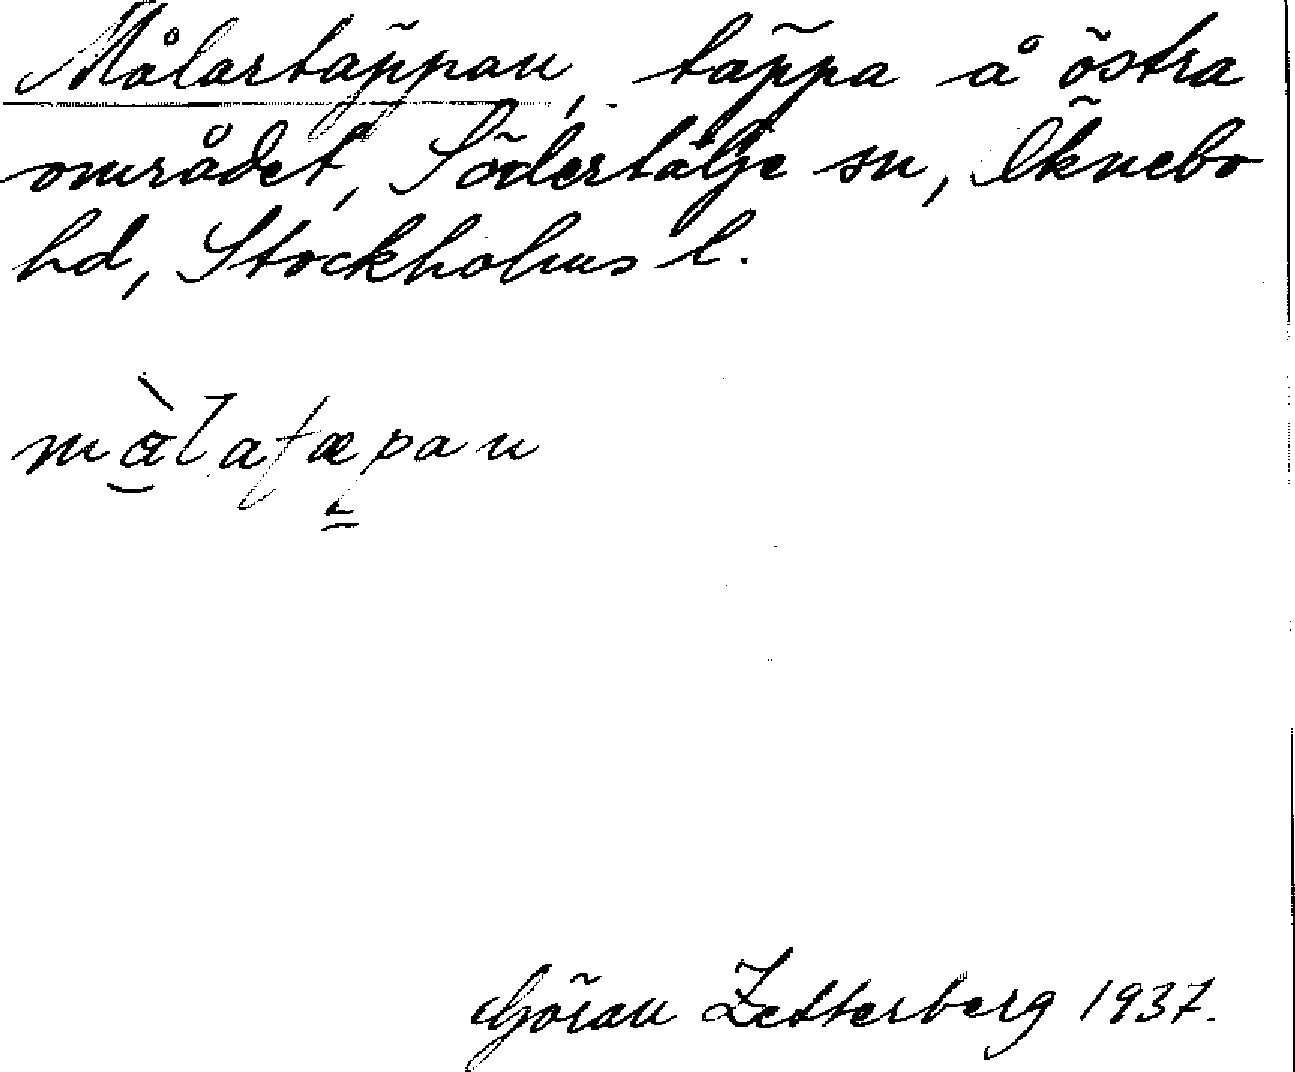 Målartäppan, täppa å östra
området, Södertälje sn, Öknebo
hd, Stockholms l.
målatæpan
Göran Zetterberg 1937.